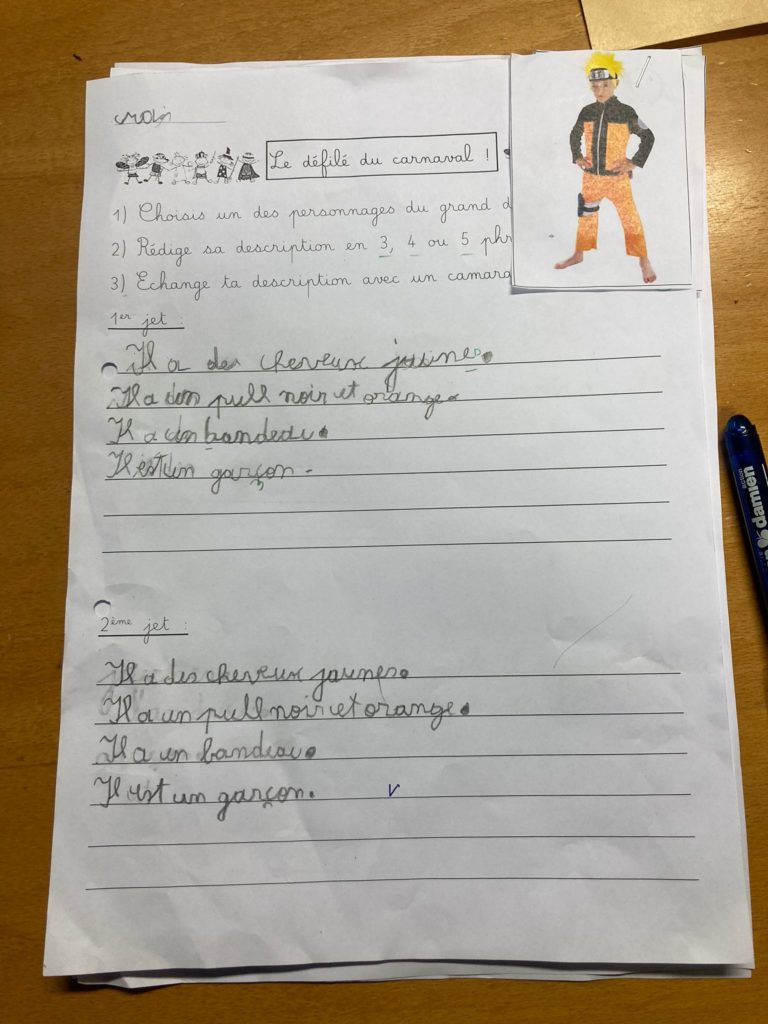 Le défilé du carnaval !
1) Choisis un des personnages du grand d
2) Rédige sa description en 3, 4 ou 5 phr
3) Echange ta description avec un camara
1er jet :
Il a des cheveux jaunes.
Il a un pull noir et orange.
Il a un bandeau.
Il est un garçon.
2ème jet :
Il a des cheveux jaunes.
Il a un pull noir et orange.
Il a un bandeau.
Il est un garçon. v
damien